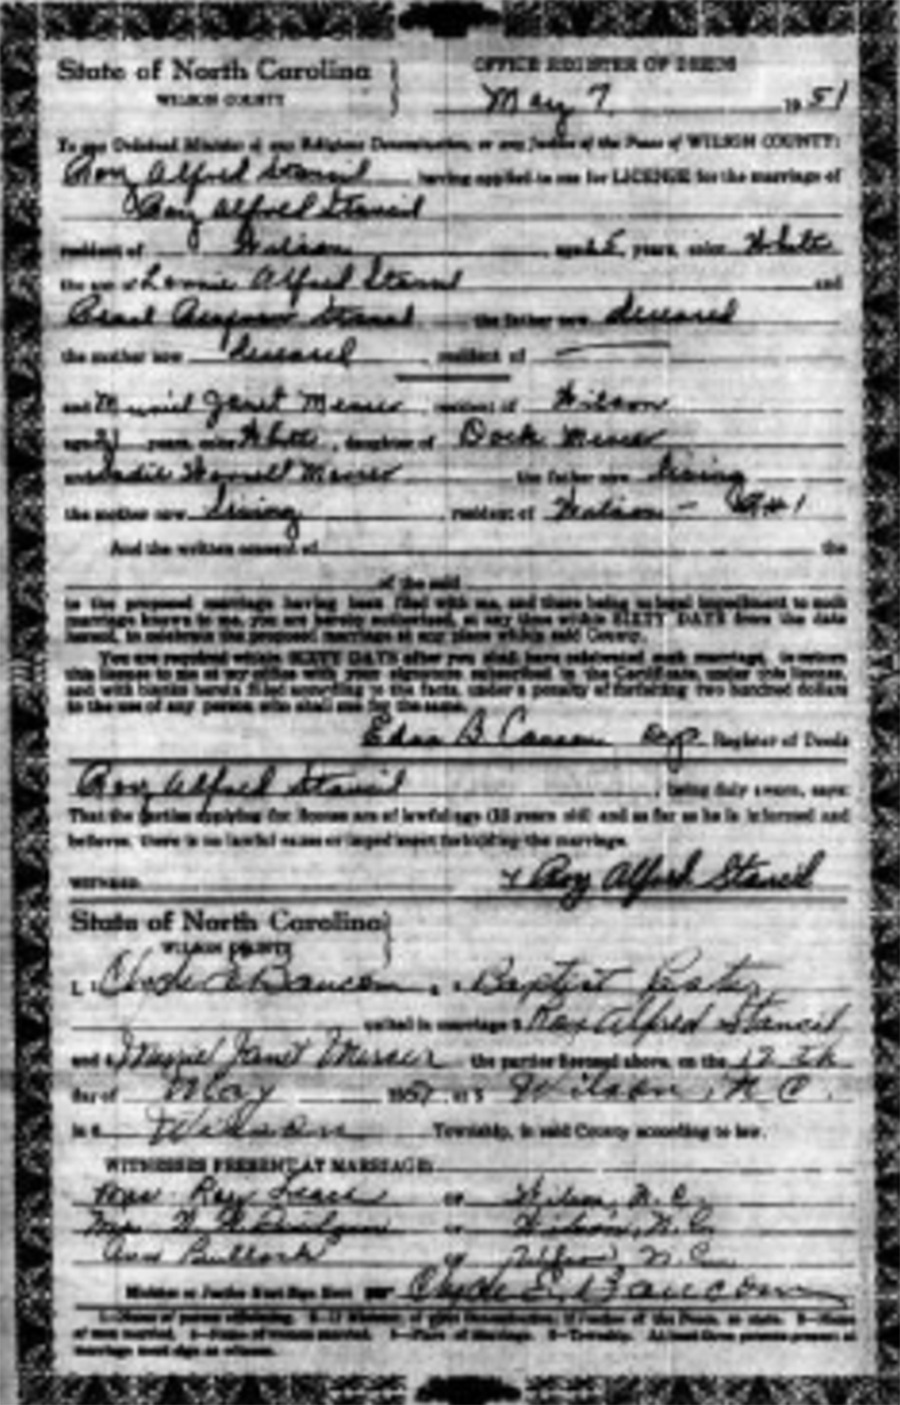 State of North Carolina
WILSON COUNTY
OFFICE REGISTER OF DEEDS
May 7 1951
To any Ordained Minister of any Religious Denomination, or any Justice of the Peace of WILSON COUNTY:
Roy Alfred Stancil having applied to me for LICENSE for the marriage of
Roy Alfred Stancil
resident of Wilson, aged years, color White
the son of Alfred Stancil and
Stancil the father now deceased
the mother now deceased, resident of
and Muriel Janet Mercer, resident of Wilson
aged 21 years, color White, daughter of Dock Mercer
and Sadie Mercer the father now living
the mother now living, resident of Wilson -
And the written consent of the
of the said
to the proposed marriage having been filed with me, and there being no legal impediment to such
marriage known to me, you are hereby authorized, at any time within SIXTY DAYS from the date
hereof, to celebrate the proposed marriage at any place within said County.
You are required within SIXTY DAYS after you shall have celebrated such marriage, to return
this license to me at my office with your signature subscribed to the Certificate, under this license,
and with blanks herein filled according to the facts, under a penalty of forfeiting two hundred dollars
to the use of any person who shall sue for the same.
Edna B. Dep. Register of Deeds
Roy Alfred Stancil, being duly sworn, says:
That the parties applying for license are of lawful age (18 years old) and as far as he is informed and
believes, there is no lawful cause or impediment forbidding the marriage.
WITNESS: Roy Alfred Stancil
State of North Carolina
WILSON COUNTY
I, Clyde E. Baucom, a Baptist Pastor
united in marriage Roy Alfred Stancil
and Muriel Janet Mercer the parties licensed above, on the 12th
day of May 1951, at Wilson, N.C.
in Wilson Township, in said County according to law.
WITNESSES PRESENT AT MARRIAGE:
Mrs. Roy of Wilson, N.C.
of Wilson, N.C.
Ann Bullock of Wilson, N.C.
Minister or Justice Must Sign Here Clyde E. Baucom
1—Name of person officiating. 3—Name
of man married. 4—Name of woman married. 5—Place of Marriage. 6—Township. At least three persons present at
marriage must sign as witness.